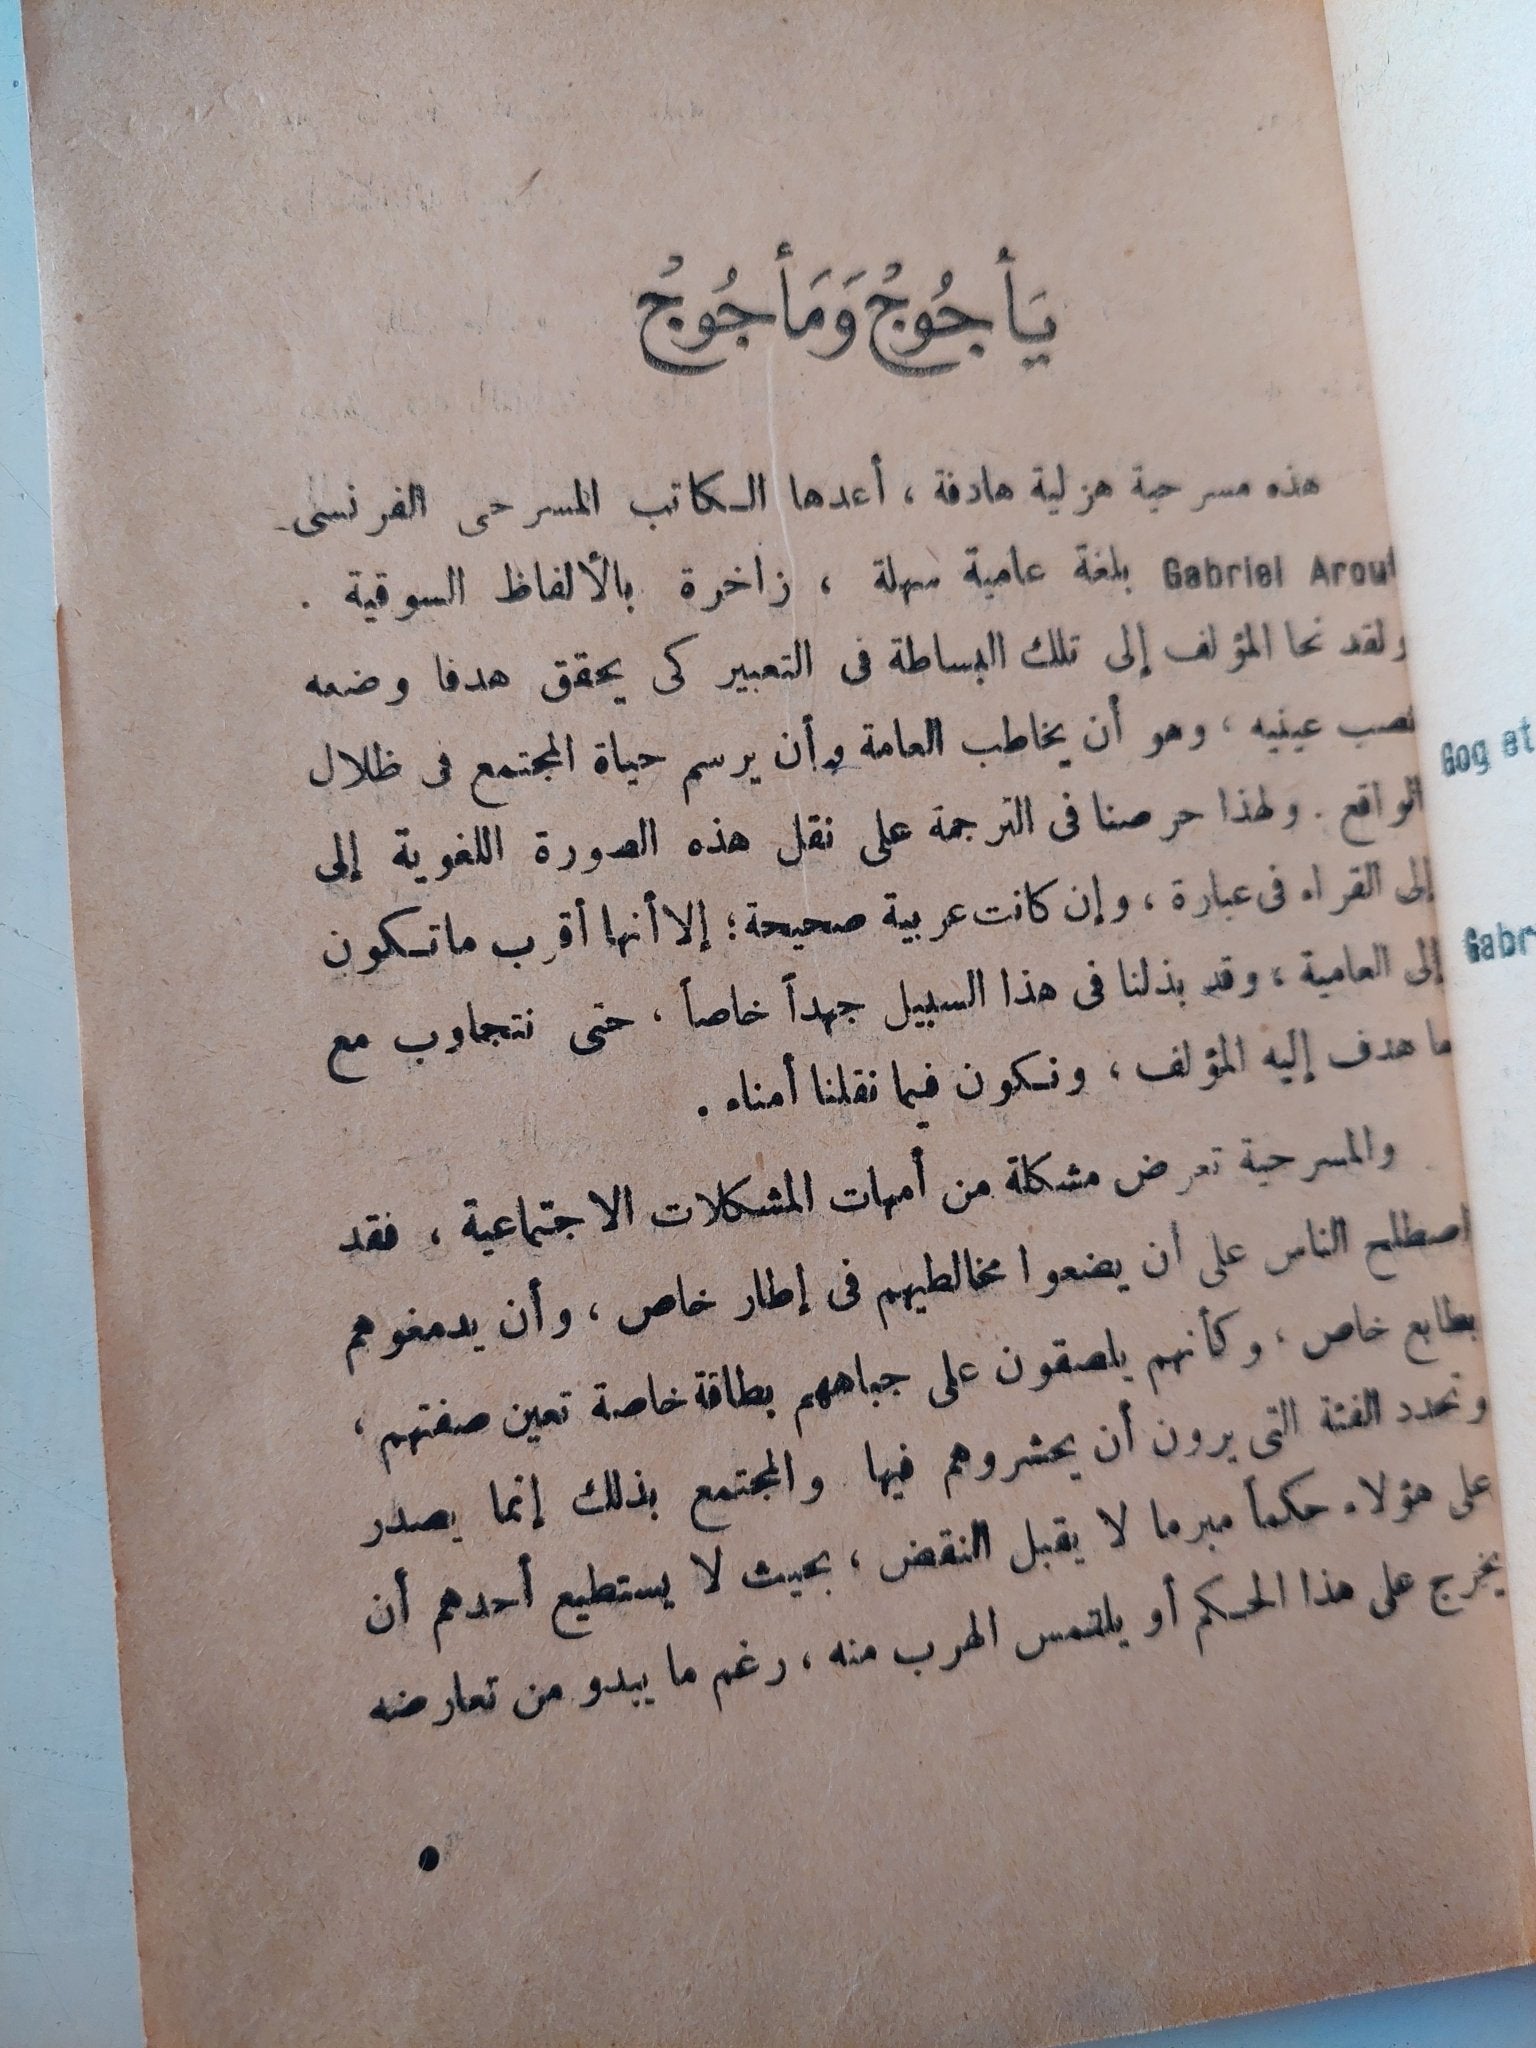 يَأجُوجُ وَمَأجُوجُ
هذه مسرحية هزلية هادفة ، أعدها الكاتب المسرحى الفرنسى
Gabriel Arout بلغة عامية سهلة ، زاخرة بالألفاظ السوقية .
ولقد نحا المؤلف إلى تلك البساطة فى التعبير كى يحقق هدفا وضعه
نصب عينيه ، وهو أن يخاطب العامة وأن يرسم حياة المجتمع فى ظلال
الواقع . ولهذا حرصنا فى الترجمة على نقل هذه الصورة اللغوية إلى
إلى القراء فى عبارة ، وإن كانت عربية صحيحة ؛ إلا أنها أقرب ما تكون
إلى العامية ، وقد بذلنا فى هذا السبيل جهداً خاصاً ، حتى نتجاوب مع
ما هدف إليه المؤلف ، ونكون فيما نقلنا أمناء .
والمسرحية تعرض مشكلة من أمهات المشكلات الاجتماعية ، فقد
اصطلح الناس على أن يضعوا مخالطيهم فى إطار خاص ، وأن يدمغوهم
بطابع خاص ، وكأنهم يلصقون على جباههم بطاقة خاصة تعين صفتهم ،
وتحدد الفئة التى يرون أن يحشروهم فيها والمجتمع بذلك إنما يصدر
على هؤلاء حكماً مبرما لا يقبل النقض ، بحيث لا يستطيع أحدهم أن
يخرج على هذا الحكم أو يلتمس الهرب منه ، رغم ما يبدو من تعارضه
Gog et
Gabr